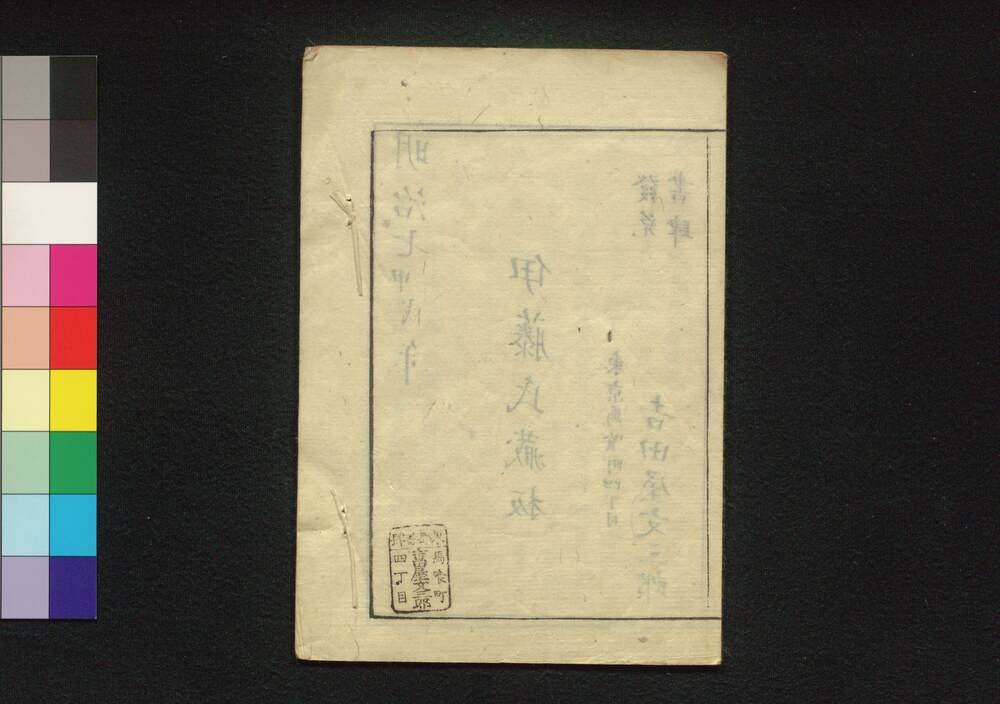 明治七甲戌年
伊藤氏藏板
東京馬喰町四丁目
書肆
發兌
吉田屋文三郎
馬喰町
吉田屋文三郎
四丁目